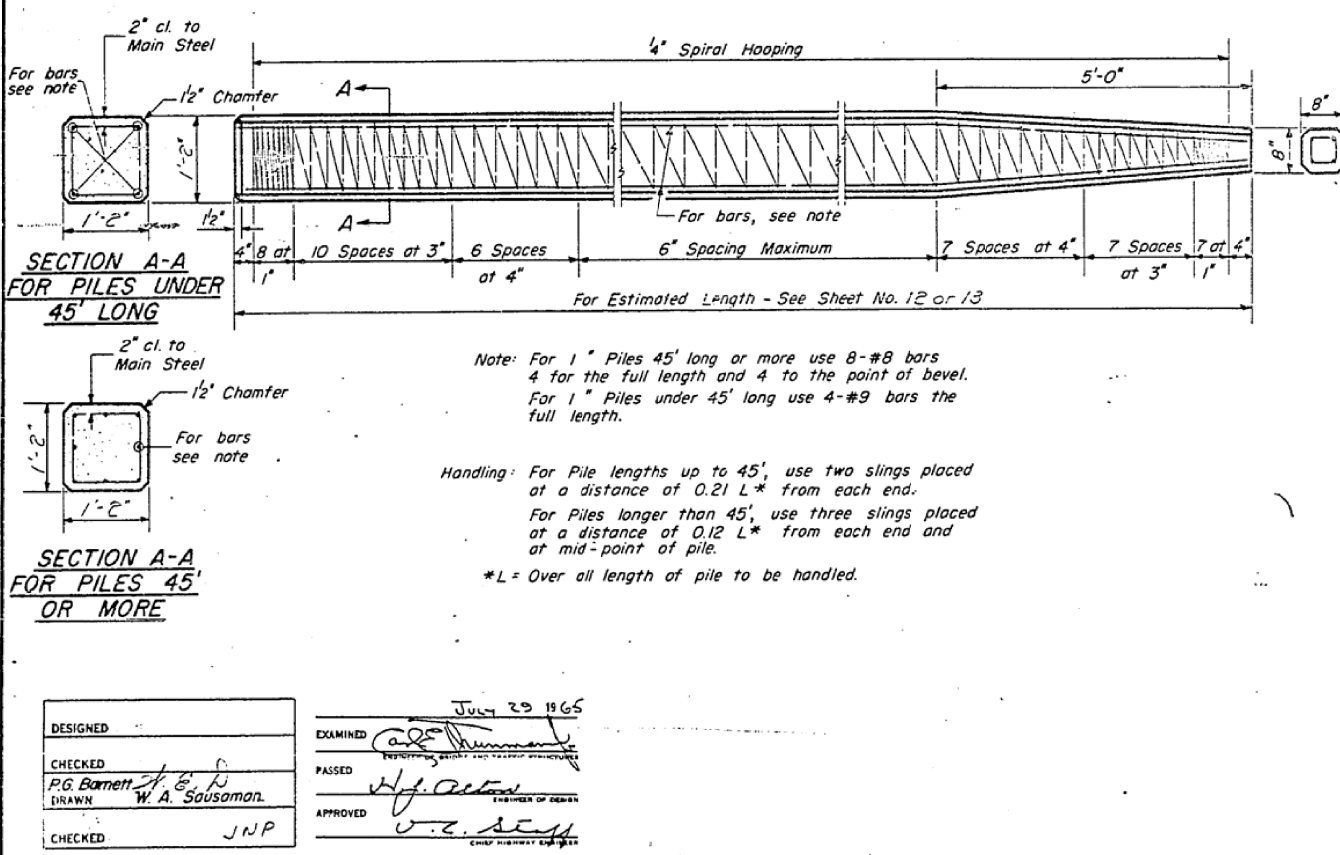 2" cl. to
Main Steel
For bars
see note
1½" Chamfer
1'-2"
1'-2"
SECTION A-A
FOR PILES UNDER
45' LONG
¼" Spiral Hooping
A
A
5'-0"
8"
8"
For bars, see note
1½"
4"
8 at
1"
10 Spaces at 3"
6 Spaces
at 4"
6" Spacing Maximum
7 Spaces at 4"
7 Spaces
at 3"
7 at
1"
4"
For Estimated Length - See Sheet No. 12 or 13
2" cl. to
Main Steel
1½" Chamfer
For bars
see note
1'-2"
1'-2"
SECTION A-A
FOR PILES 45'
OR MORE
Note: For 1 " Piles 45' long or more use 8-#8 bars
4 for the full length and 4 to the point of bevel.
For 1 " Piles under 45' long use 4-#9 bars the
full length.
Handling: For Pile lengths up to 45', use two slings placed
at a distance of 0.21 L* from each end.
For Piles longer than 45', use three slings placed
at a distance of 0.12 L* from each end and
at mid-point of pile.
*L = Over all length of pile to be handled.
DESIGNED
CHECKED
P.G. Barnett
DRAWN W. A. Sausaman
CHECKED JNP
July 29 1965
EXAMINED
ENGINEER OF BRIDGE AND TRAFFIC STRUCTURES
PASSED
ENGINEER OF DESIGN
APPROVED
CHIEF HIGHWAY ENGINEER